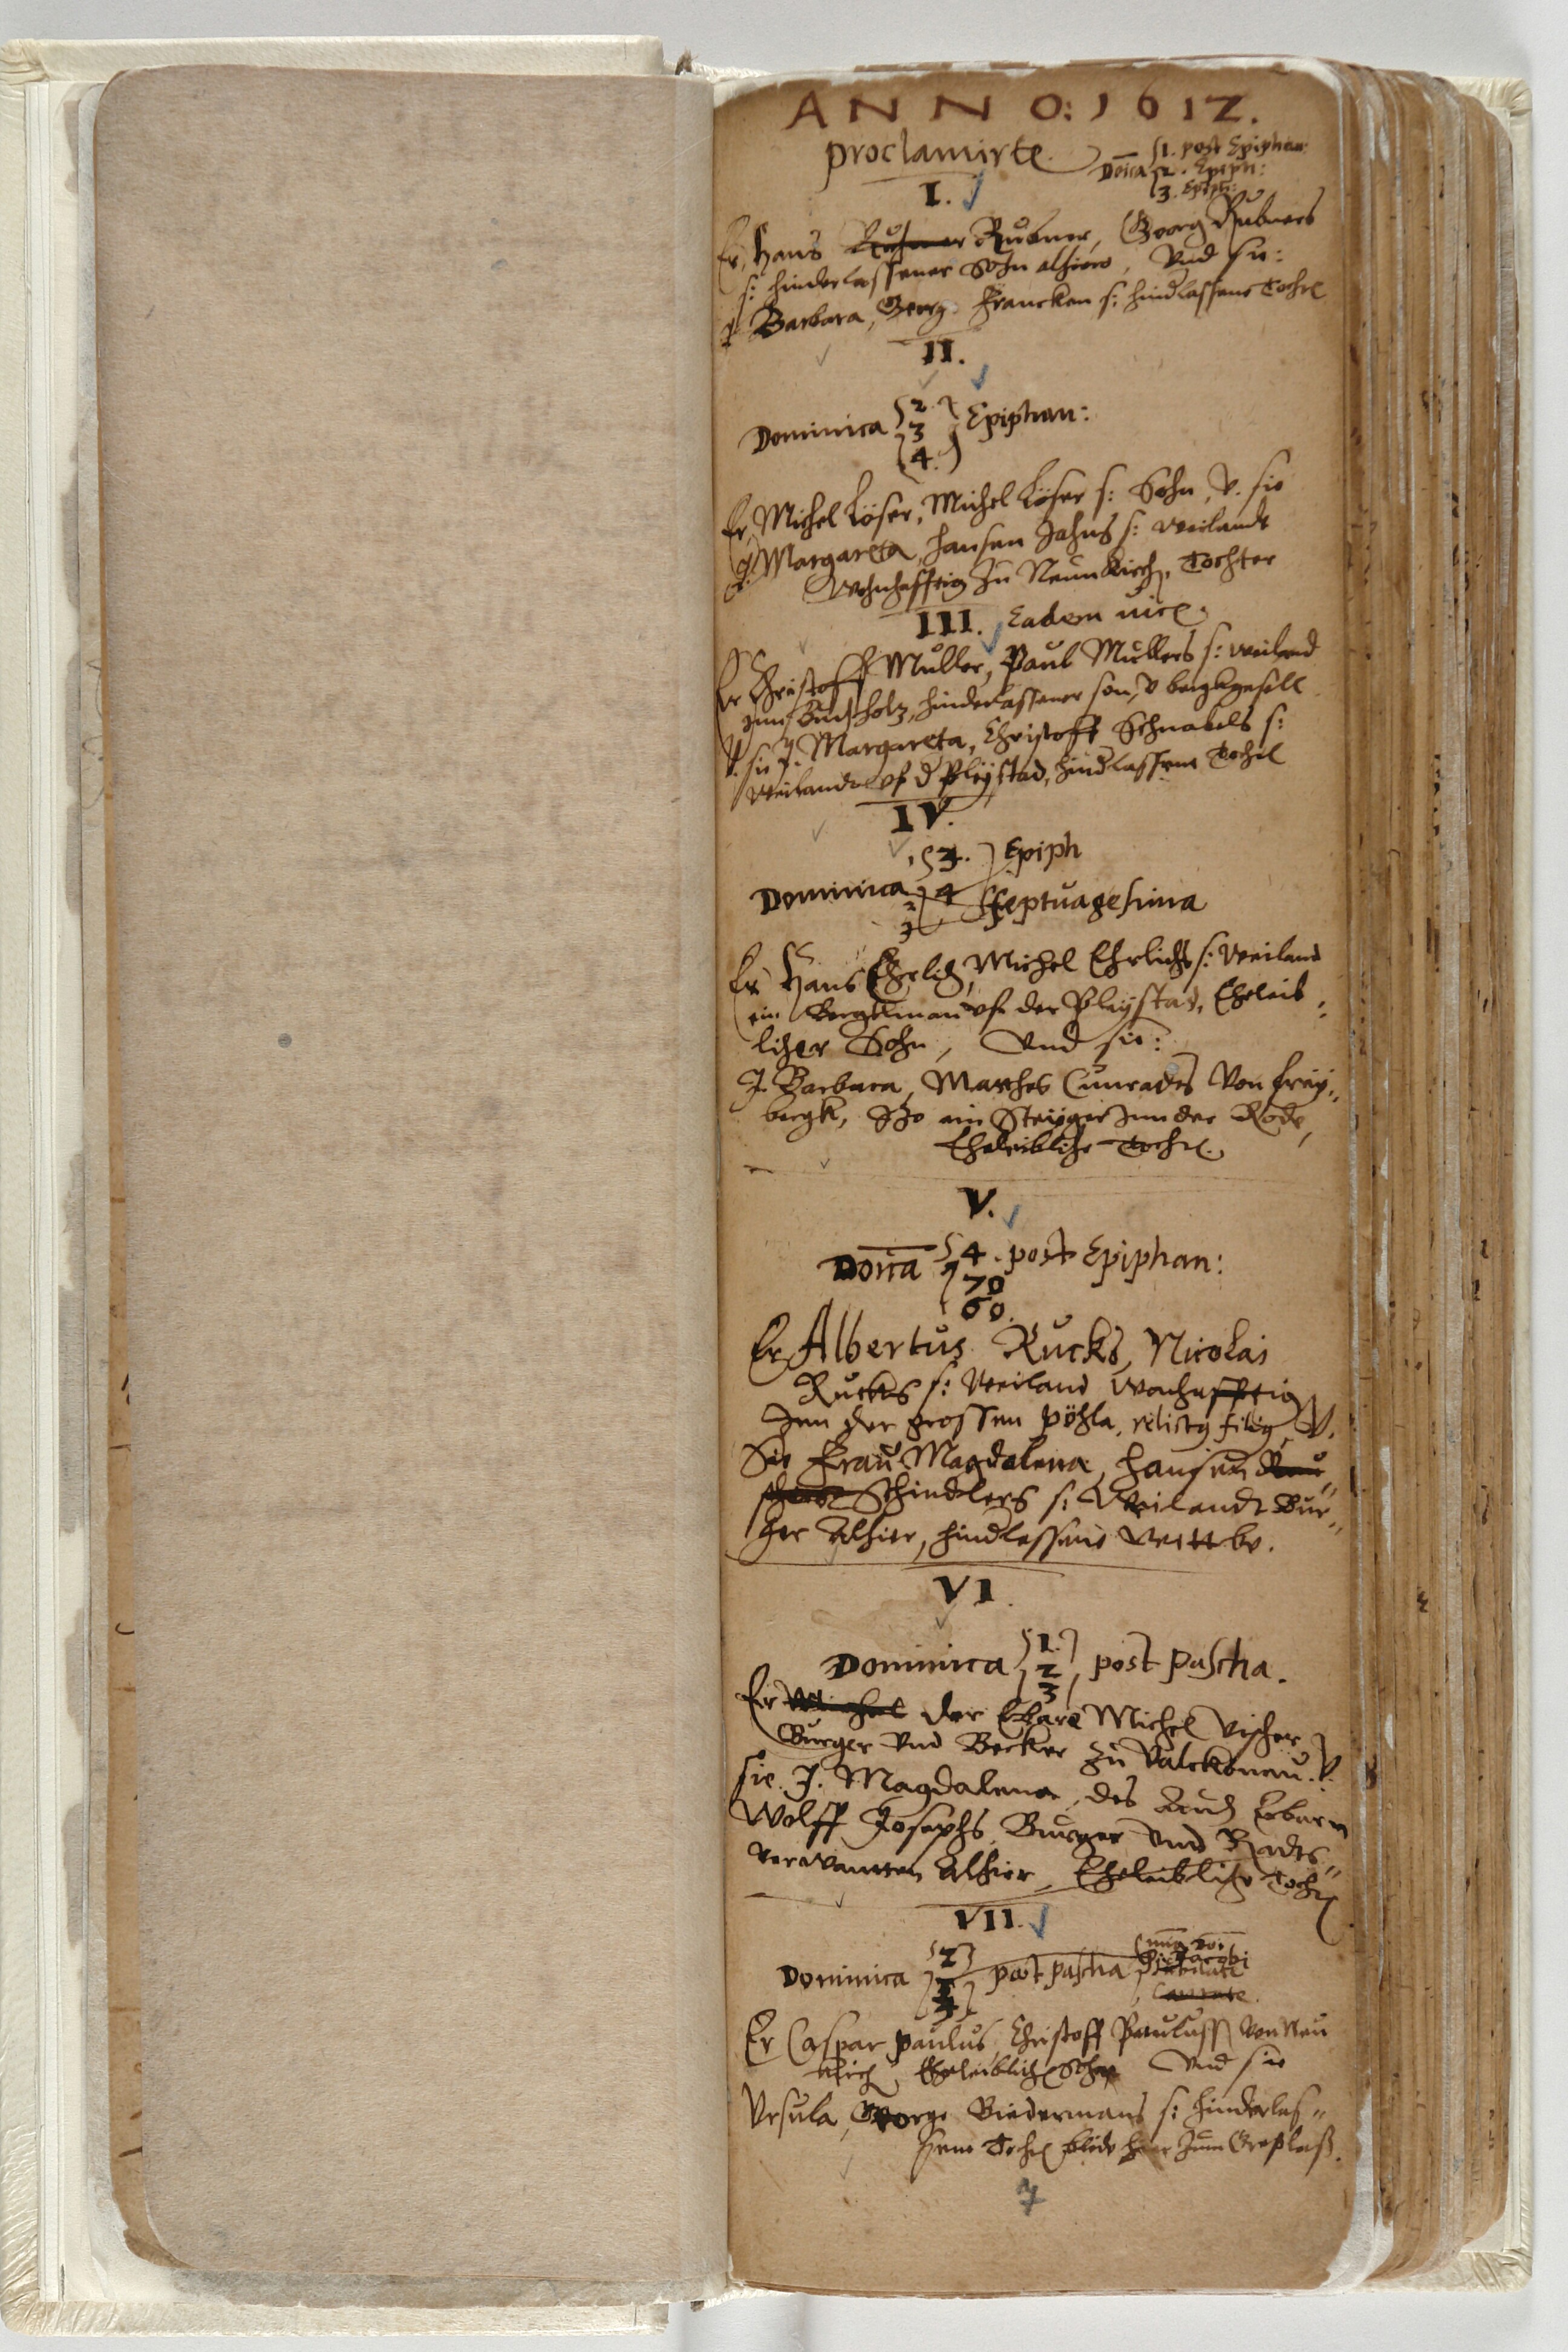 ANNO: 1612.
proclamirte.
Doica 1. post Epiphan:
2. Epiph:
3. Epiph:
I.
Er, Hans Rubner, Georg Rubners
s: hinderlassener Sohn alhier, Vnd sie:
J. Barbara, Georg Francken s: hindlassene Tocht
II.
Dominica 2. 3 4. Epiphan:
Er, Michel Löser, Michel Löser s: Sohn, V. sie
J. Margareta, Hansen Jahns s: weilandt
Wohnhafftig zu Neunkirch, Tochter
III. Eadem vice.
Er Christoff Müller, Paul Müllers s: weiland
zum Buchholz, hinderlassener son, V bergkgesell
V. sie J. Margareta, Christoff Schnabels s:
weilandt vf d Pleystad, hindlassene Tocht
IV.
Dominica 3. 4 Epiph
Septuagesima
Er Hans Ehrlich, Michel Ehrlichs s: weiland
ein Bergkman vf der Pleystad, Eheleib-
licher Sohn, Vnd sie:
J. Barbara, Matthes Cunrades Von Frey-
bergk, Izo ein Steyger inn der Rode,
Eheleibliche Tocht.
V.
Doica 4. post Epiphan:
70
60.
Er, Albertus Rucks, Nicolai
Rucks s: weiland wonhafftig
Inn der grossen Pöhla, relict9 fili9, V.
Sie Frau Magdalena, Hansen
Schindlers s: Weilandt Bur-
ger Alhier, hindlassene Wittbe.
VI.
Dominica 1. 2 3 post Pascha.
Er Michel der Erbare Michel Vischer
Burger Vnd Becker zu Valckenau. V.
sie. J. Magdalena, des Auch Erbarn
Wolff Josephs, Burger Vnd Radts-
verwanten Alhier, Eheleibliche Tocht
VII.
Dominica 2 3 4 post pascha
Er Caspar Paulus, Christoff Pauluss Von Neu
kirch, Eheleiblich Sohn Vnd sie
Vrsula, George Biedermans s: hinderlas-
sene Tocht
7